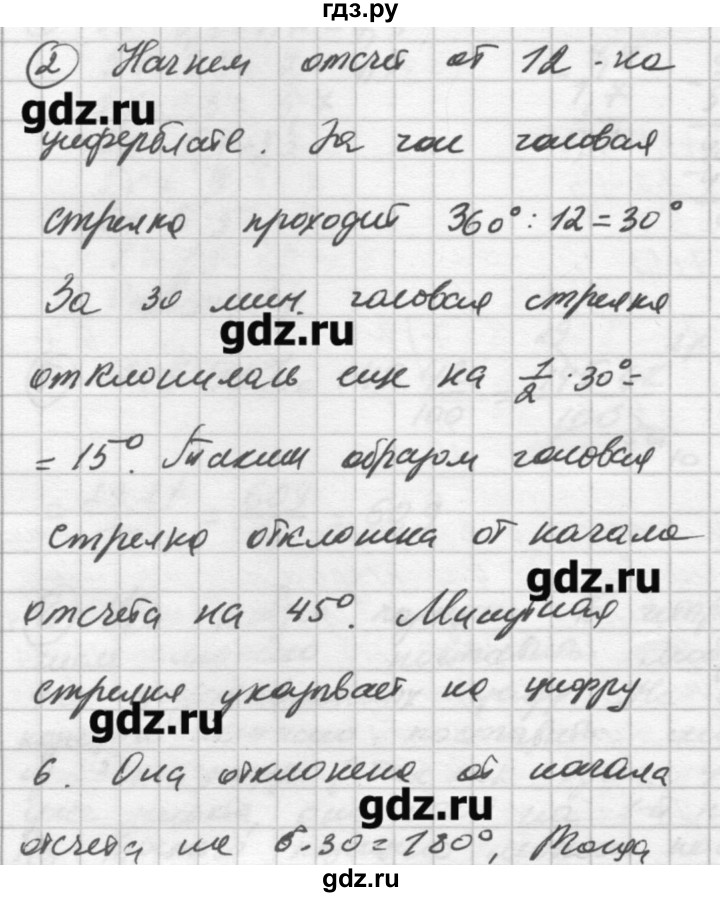 гдз.ру
② Начнем отсчет от 12 - на
gdz.ru
циферблате. За час часовая
стрелка проходит 360° : 12 = 30°
За 30 мин. часовая стрелка
gdz.ru
отклонилась еще на 1/2 · 30° =
= 15°. Таким образом часовая
стрелка отклонена от начала
gdz.ru
отсчета на 45°. Минутная
стрелка указывает на цифру
gdz.ru
6. Она отклонена от начала
gdz.ru
отсчета на 6 · 30 = 180°, Тогда
gdz.ru